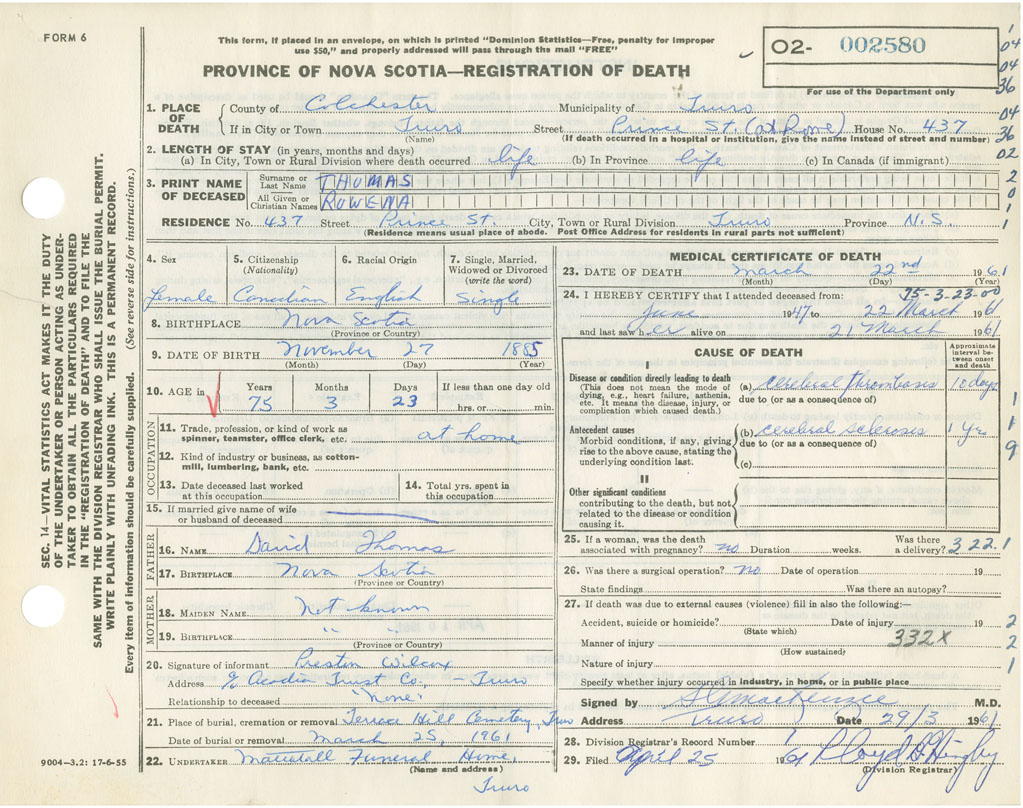 FORM 6
This form, if placed in an envelope, on which is printed "Dominion Statistics—Free, penalty for improper
use $50," and properly addressed will pass through the mail "FREE"
PROVINCE OF NOVA SCOTIA—REGISTRATION OF DEATH
02- 002580
For use of the Department only
1. PLACE OF DEATH { County of Colchester Municipality of Truro
If in City or Town Truro Street Prince St. (at home) House No. 437
(Name) (If death occurred in a hospital or institution, give the name instead of street and number)
2. LENGTH OF STAY (in years, months and days)
(a) In City, Town or Rural Division where death occurred life (b) In Province life (c) In Canada (if immigrant)
3. PRINT NAME OF DECEASED
Surname or Last Name THOMAS
All Given or Christian Names ROWENA
RESIDENCE No. 437 Street Prince St. City, Town or Rural Division Truro Province N.S.
(Residence means usual place of abode. Post Office Address for residents in rural parts not sufficient)
4. Sex 5. Citizenship (Nationality) 6. Racial Origin 7. Single, Married, Widowed or Divorced (write the word)
Female Canadian English Single
8. BIRTHPLACE Nova Scotia
(Province or Country)
9. DATE OF BIRTH November 27 1885
(Month) (Day) (Year)
10. AGE in Years Months Days If less than one day old
75 3 23 hrs. or min.
OCCUPATION
11. Trade, profession, or kind of work as spinner, teamster, office clerk, etc. at home
12. Kind of industry or business, as cotton-mill, lumbering, bank, etc.
13. Date deceased last worked at this occupation
14. Total yrs. spent in this occupation
15. If married give name of wife or husband of deceased
FATHER
16. NAME David Thomas
17. BIRTHPLACE Nova Scotia
(Province or Country)
MOTHER
18. MAIDEN NAME Not known
19. BIRTHPLACE " "
(Province or Country)
20. Signature of informant Preston Wilcox
Address c/o Acadia Trust Co. - Truro
Relationship to deceased "None"
21. Place of burial, cremation or removal Terrace Hill Cemetery, Truro
Date of burial or removal March 25, 1961
22. UNDERTAKER Mattatall Funeral Home,
(Name and address)
Truro
MEDICAL CERTIFICATE OF DEATH
23. DATE OF DEATH March 22nd 1961
(Month) (Day) (Year)
75-3-23-00
24. I HEREBY CERTIFY that I attended deceased from:
June 1947 to 22 March 1961
and last saw her alive on 21 March 1961
CAUSE OF DEATH
Approximate interval between onset and death
I
Disease or condition directly leading to death
(This does not mean the mode of dying, e.g., heart failure, asthenia, etc. It means the disease, injury, or complication which caused death.)
(a) Cerebral thrombosis 10 days
due to (or as a consequence of)
Antecedent causes
Morbid conditions, if any, giving rise to the above cause, stating the underlying condition last.
(b) Cerebral sclerosis 1 yr.
due to (or as a consequence of)
(c)
II
Other significant conditions
contributing to the death, but not related to the disease or condition causing it.
25. If a woman, was the death associated with pregnancy? no Duration weeks. Was there a delivery?
322.1
26. Was there a surgical operation? no Date of operation 19
State findings Was there an autopsy?
27. If death was due to external causes (violence) fill in also the following:—
Accident, suicide or homicide? Date of injury 19
(State which)
Manner of injury 332X
(How sustained)
Nature of injury
Specify whether injury occurred in industry, in home, or in public place
Signed by M.D.
Address Truro Date 29/3 1961
28. Division Registrar's Record Number
29. Filed April 25 1961
(Division Registrar)
SEC. 14—VITAL STATISTICS ACT MAKES IT THE DUTY
OF THE UNDERTAKER OR PERSON ACTING AS UNDER-
TAKER TO OBTAIN ALL THE PARTICULARS REQUIRED
IN THE "REGISTRATION OF DEATH" AND TO FILE THE
SAME WITH THE DIVISION REGISTRAR WHO SHALL ISSUE THE BURIAL PERMIT.
WRITE PLAINLY WITH UNFADING INK. THIS IS A PERMANENT RECORD.
Every item of information should be carefully supplied. (See reverse side for instructions.)
9004-3.2: 17-6-55